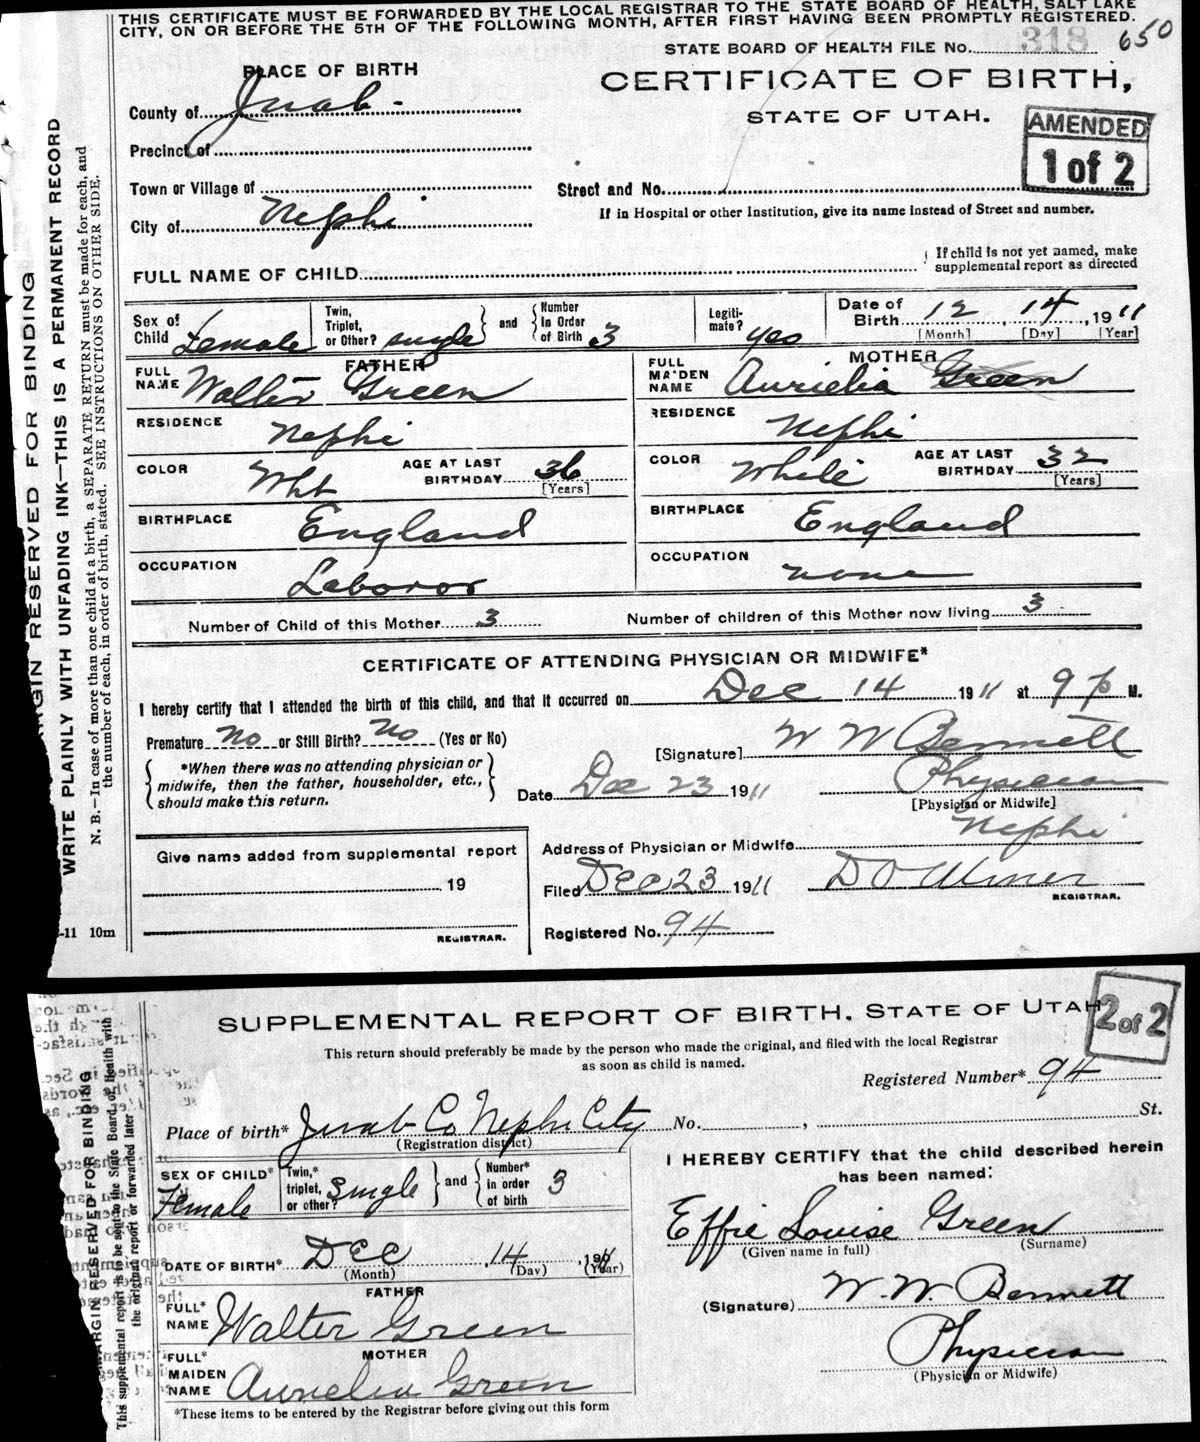 THIS CERTIFICATE MUST BE FORWARDED BY THE LOCAL REGISTRAR TO THE STATE BOARD OF HEALTH, SALT LAKE
CITY, ON OR BEFORE THE 5TH OF THE FOLLOWING MONTH, AFTER FIRST HAVING BEEN PROMPTLY REGISTERED.
STATE BOARD OF HEALTH FILE No. 318 650
PLACE OF BIRTH
CERTIFICATE OF BIRTH,
STATE OF UTAH.
AMENDED
1 of 2
County of Juab
Precinct of
Town or Village of
Street and No.
City of Nephi
If in Hospital or other Institution, give its name instead of Street and number.
FULL NAME OF CHILD
If child is not yet named, make
supplemental report as directed
Sex of Child Female
Twin, Triplet, or Other? single
and
Number in Order of Birth 3
Legiti-mate? yes
Date of Birth 12, 14, 1911
[Month] [Day] [Year]
FATHER
MOTHER
FULL NAME Walter Green
FULL MAIDEN NAME Aurielia Green
RESIDENCE Nephi
RESIDENCE Nephi
COLOR Wht
AGE AT LAST BIRTHDAY 36
[Years]
COLOR White
AGE AT LAST BIRTHDAY 32
[Years]
BIRTHPLACE England
BIRTHPLACE England
OCCUPATION Laboror
OCCUPATION none
Number of Child of this Mother 3
Number of children of this Mother now living 3
CERTIFICATE OF ATTENDING PHYSICIAN OR MIDWIFE*
I hereby certify that I attended the birth of this child, and that it occurred on Dec 14 1911 at 9 p M.
Premature No or Still Birth? No (Yes or No)
[Signature] W W Bennett
*When there was no attending physician or
midwife, then the father, householder, etc.,
should make this return.
Date Dec 23 1911
Physician
[Physician or Midwife]
Address of Physician or Midwife Nephi
Give name added from supplemental report
19
REGISTRAR.
Filed Dec 23 1911
REGISTRAR.
Registered No. 94
-11 10m
MARGIN RESERVED FOR BINDING
WRITE PLAINLY WITH UNFADING INK—THIS IS A PERMANENT RECORD
N. B.—In case of more than one child at a birth, a SEPARATE RETURN must be made for each, and
the number of each, in order of birth, stated. SEE INSTRUCTIONS ON OTHER SIDE.
SUPPLEMENTAL REPORT OF BIRTH. STATE OF UTAH
2 of 2
This return should preferably be made by the person who made the original, and filed with the local Registrar
as soon as child is named.
Registered Number* 94
Place of birth* Juab Co Nephi City No. , St.
(Registration district)
SEX OF CHILD* Female
Twin,* triplet, or other? Single
and
Number* in order of birth 3
I HEREBY CERTIFY that the child described herein
has been named:
Effie Louise Green
(Given name in full) (Surname)
DATE OF BIRTH* DEC , 14 , 1911
(Month) (Day) (Year)
FATHER
FULL* NAME Walter Green
(Signature) W. W. Bennett
Physician
(Physician or Midwife)
MOTHER
FULL* MAIDEN NAME Aurielia Green
*These items to be entered by the Registrar before giving out this form
MARGIN RESERVED FOR BINDING
This supplemental report is to be sent to the State Board of Health with
the original report or forwarded later